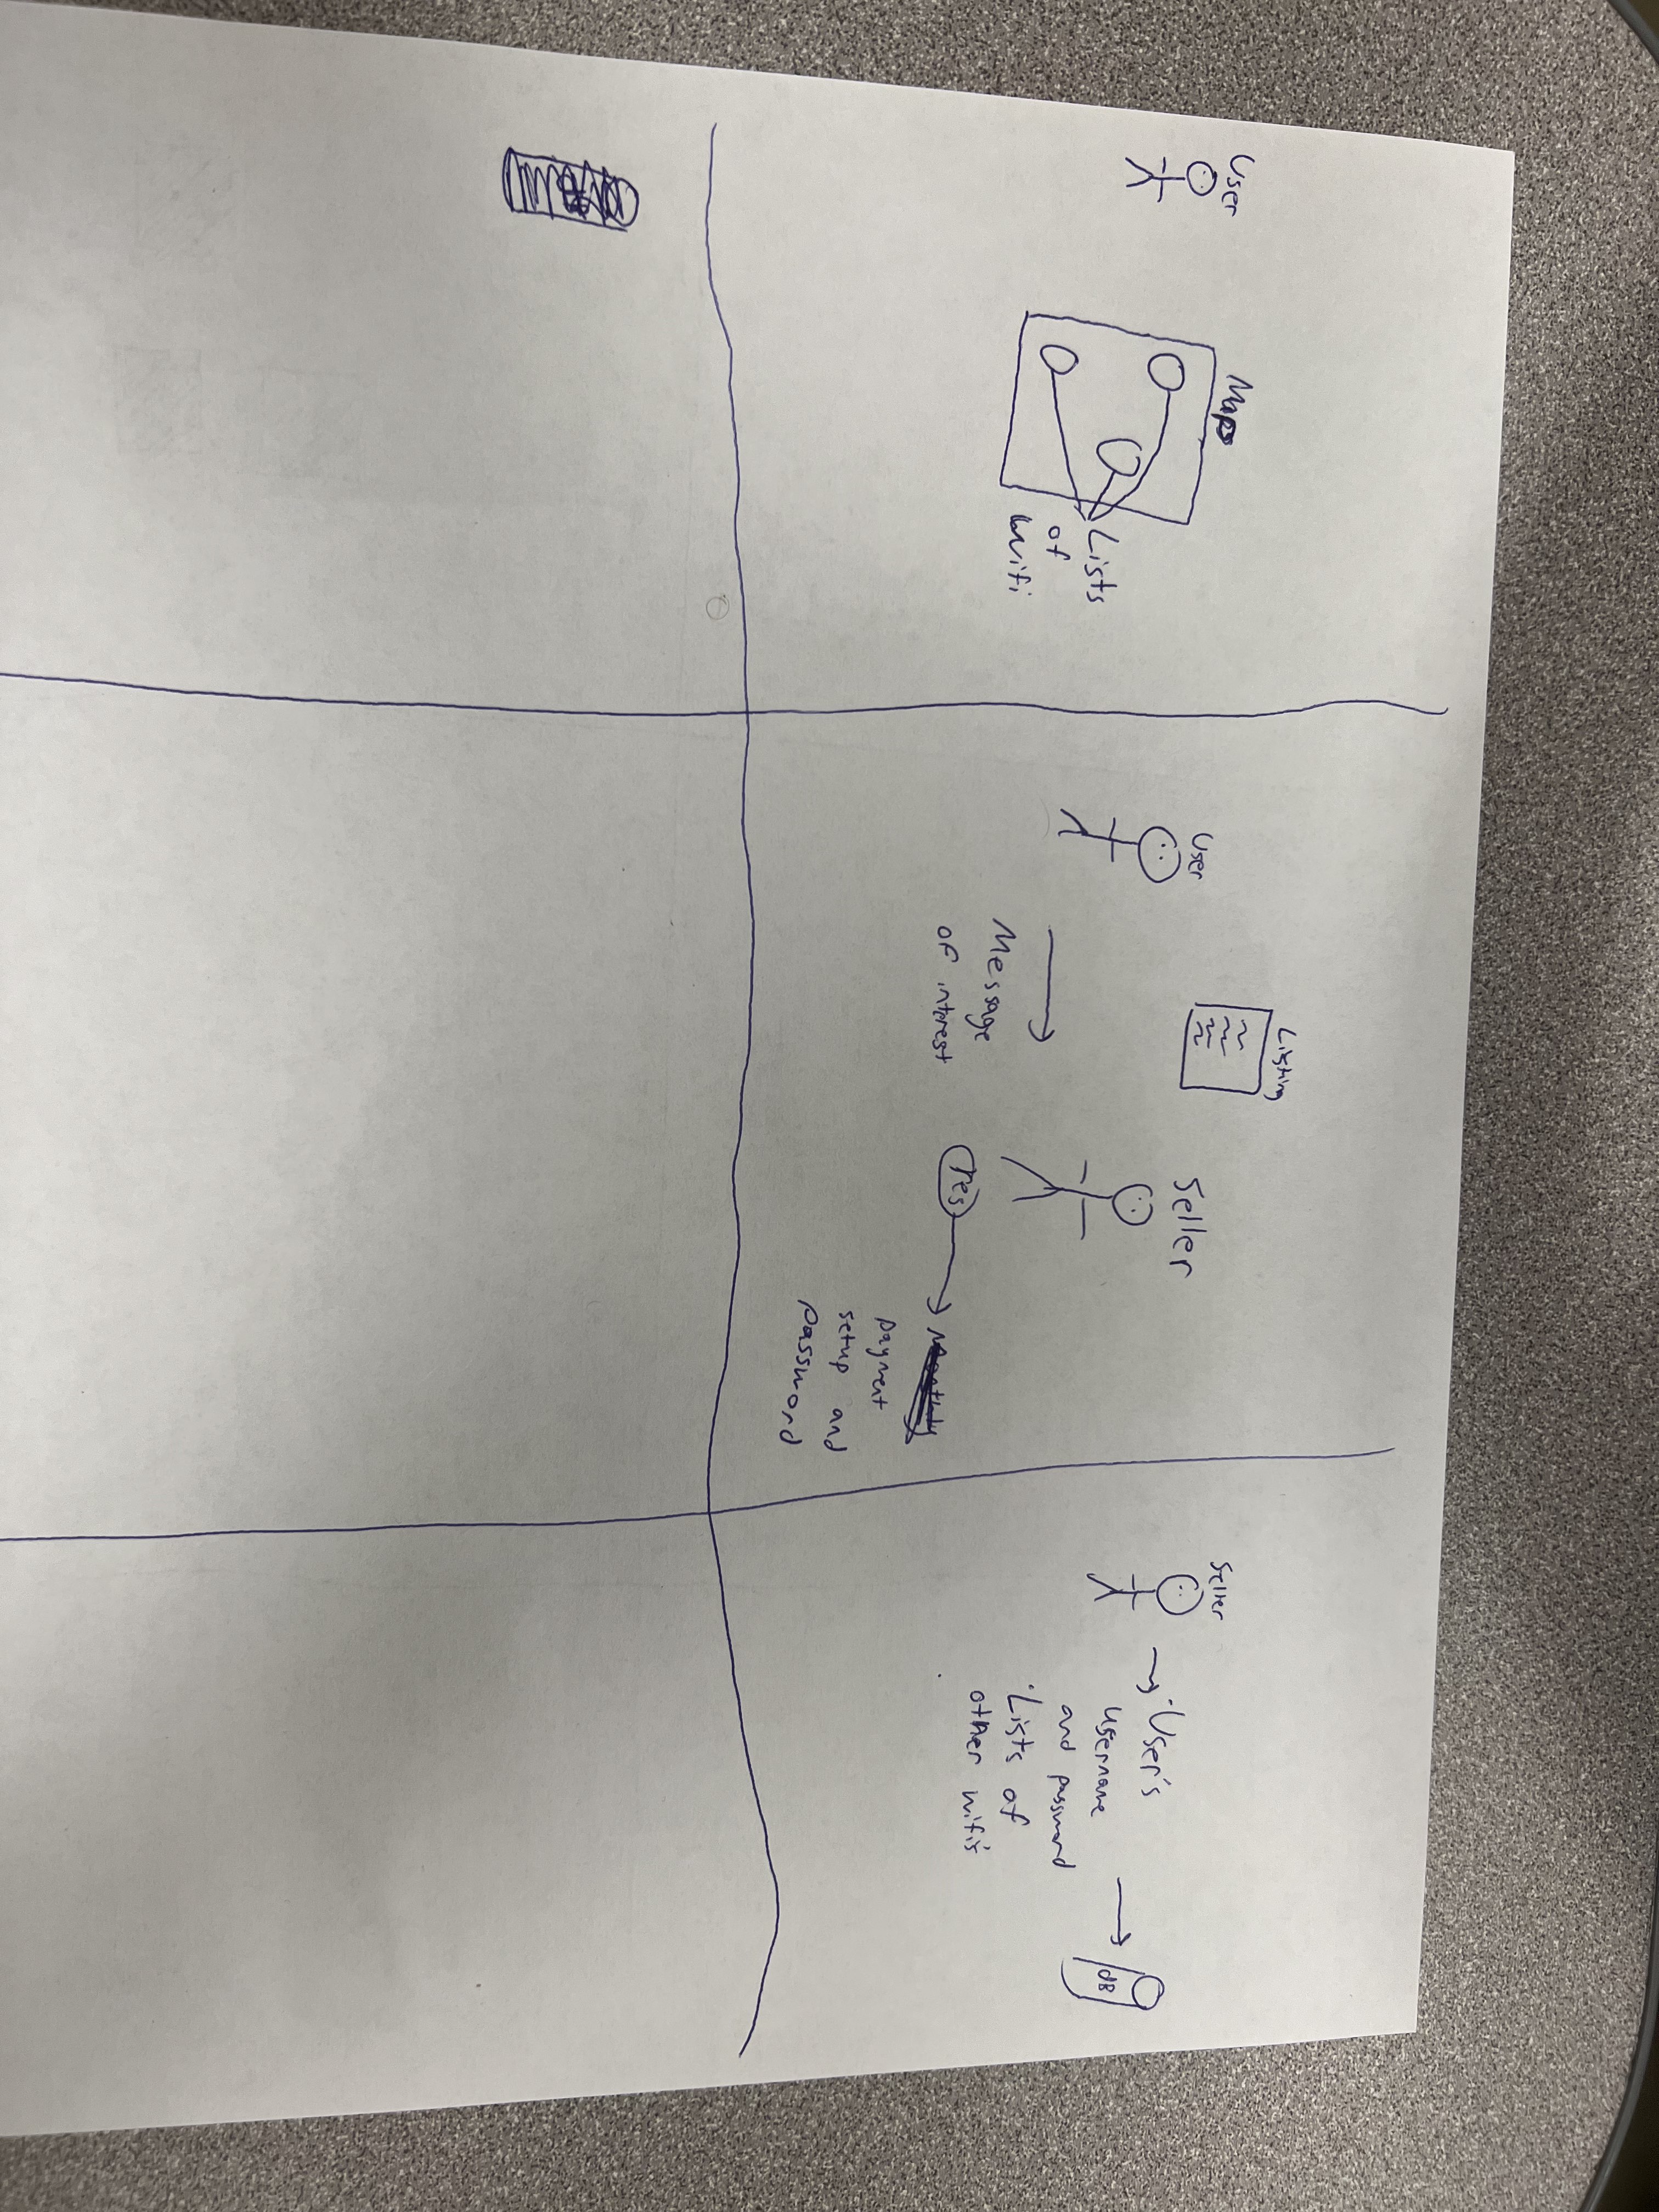 User
Maps
Lists
of
wifi
User
Listing
Message
of interest
Seller
Yes
payment
setup and
password
Seller
• User's
username
and password
• Lists of
other wifi's
dB